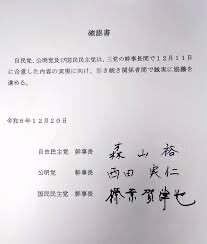 確認書
自民党、公明党及び国民民主党は、三党の幹事長間で１２月１１日
に合意した内容の実現に向け、引き続き関係者間で誠実に協議を
進める。
令和６年１２月２０日
自由民主党 幹事長 森山裕
公明党 幹事長 西田実仁
国民民主党 幹事長 榛葉賀津也